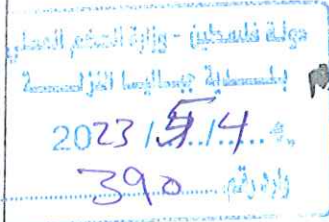 دولة فلسطين - وزارة الحكم المحلي
بلدية جباليا النزلة
2023 / 5 / 4
وارد رقم 390